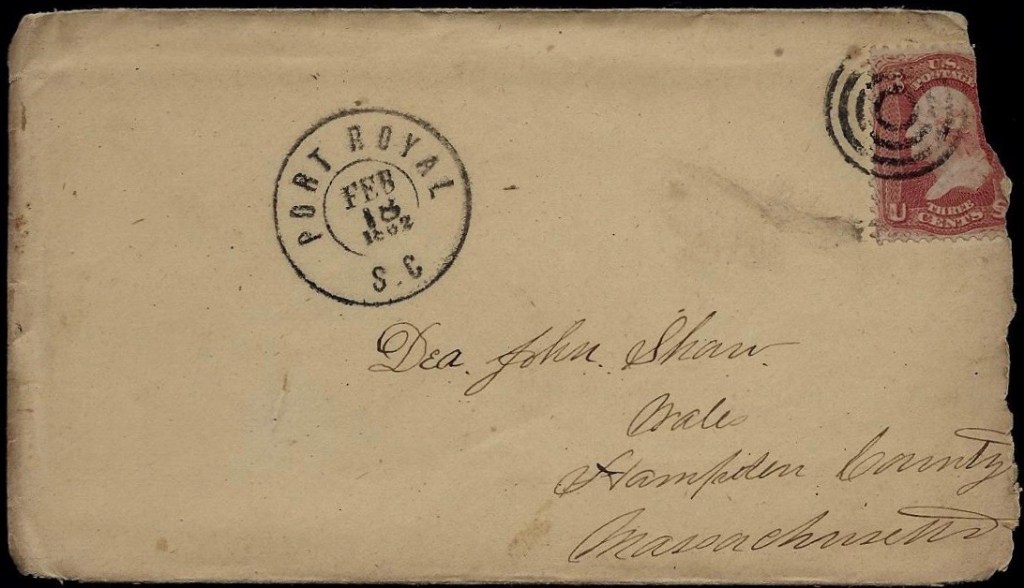 PORT ROYAL
FEB
18
1862
S.C
U.S.
POSTAGE
U
THREE
CENTS
S
Dea. John. Shaw
Wales
Hampden County
Massachusetts